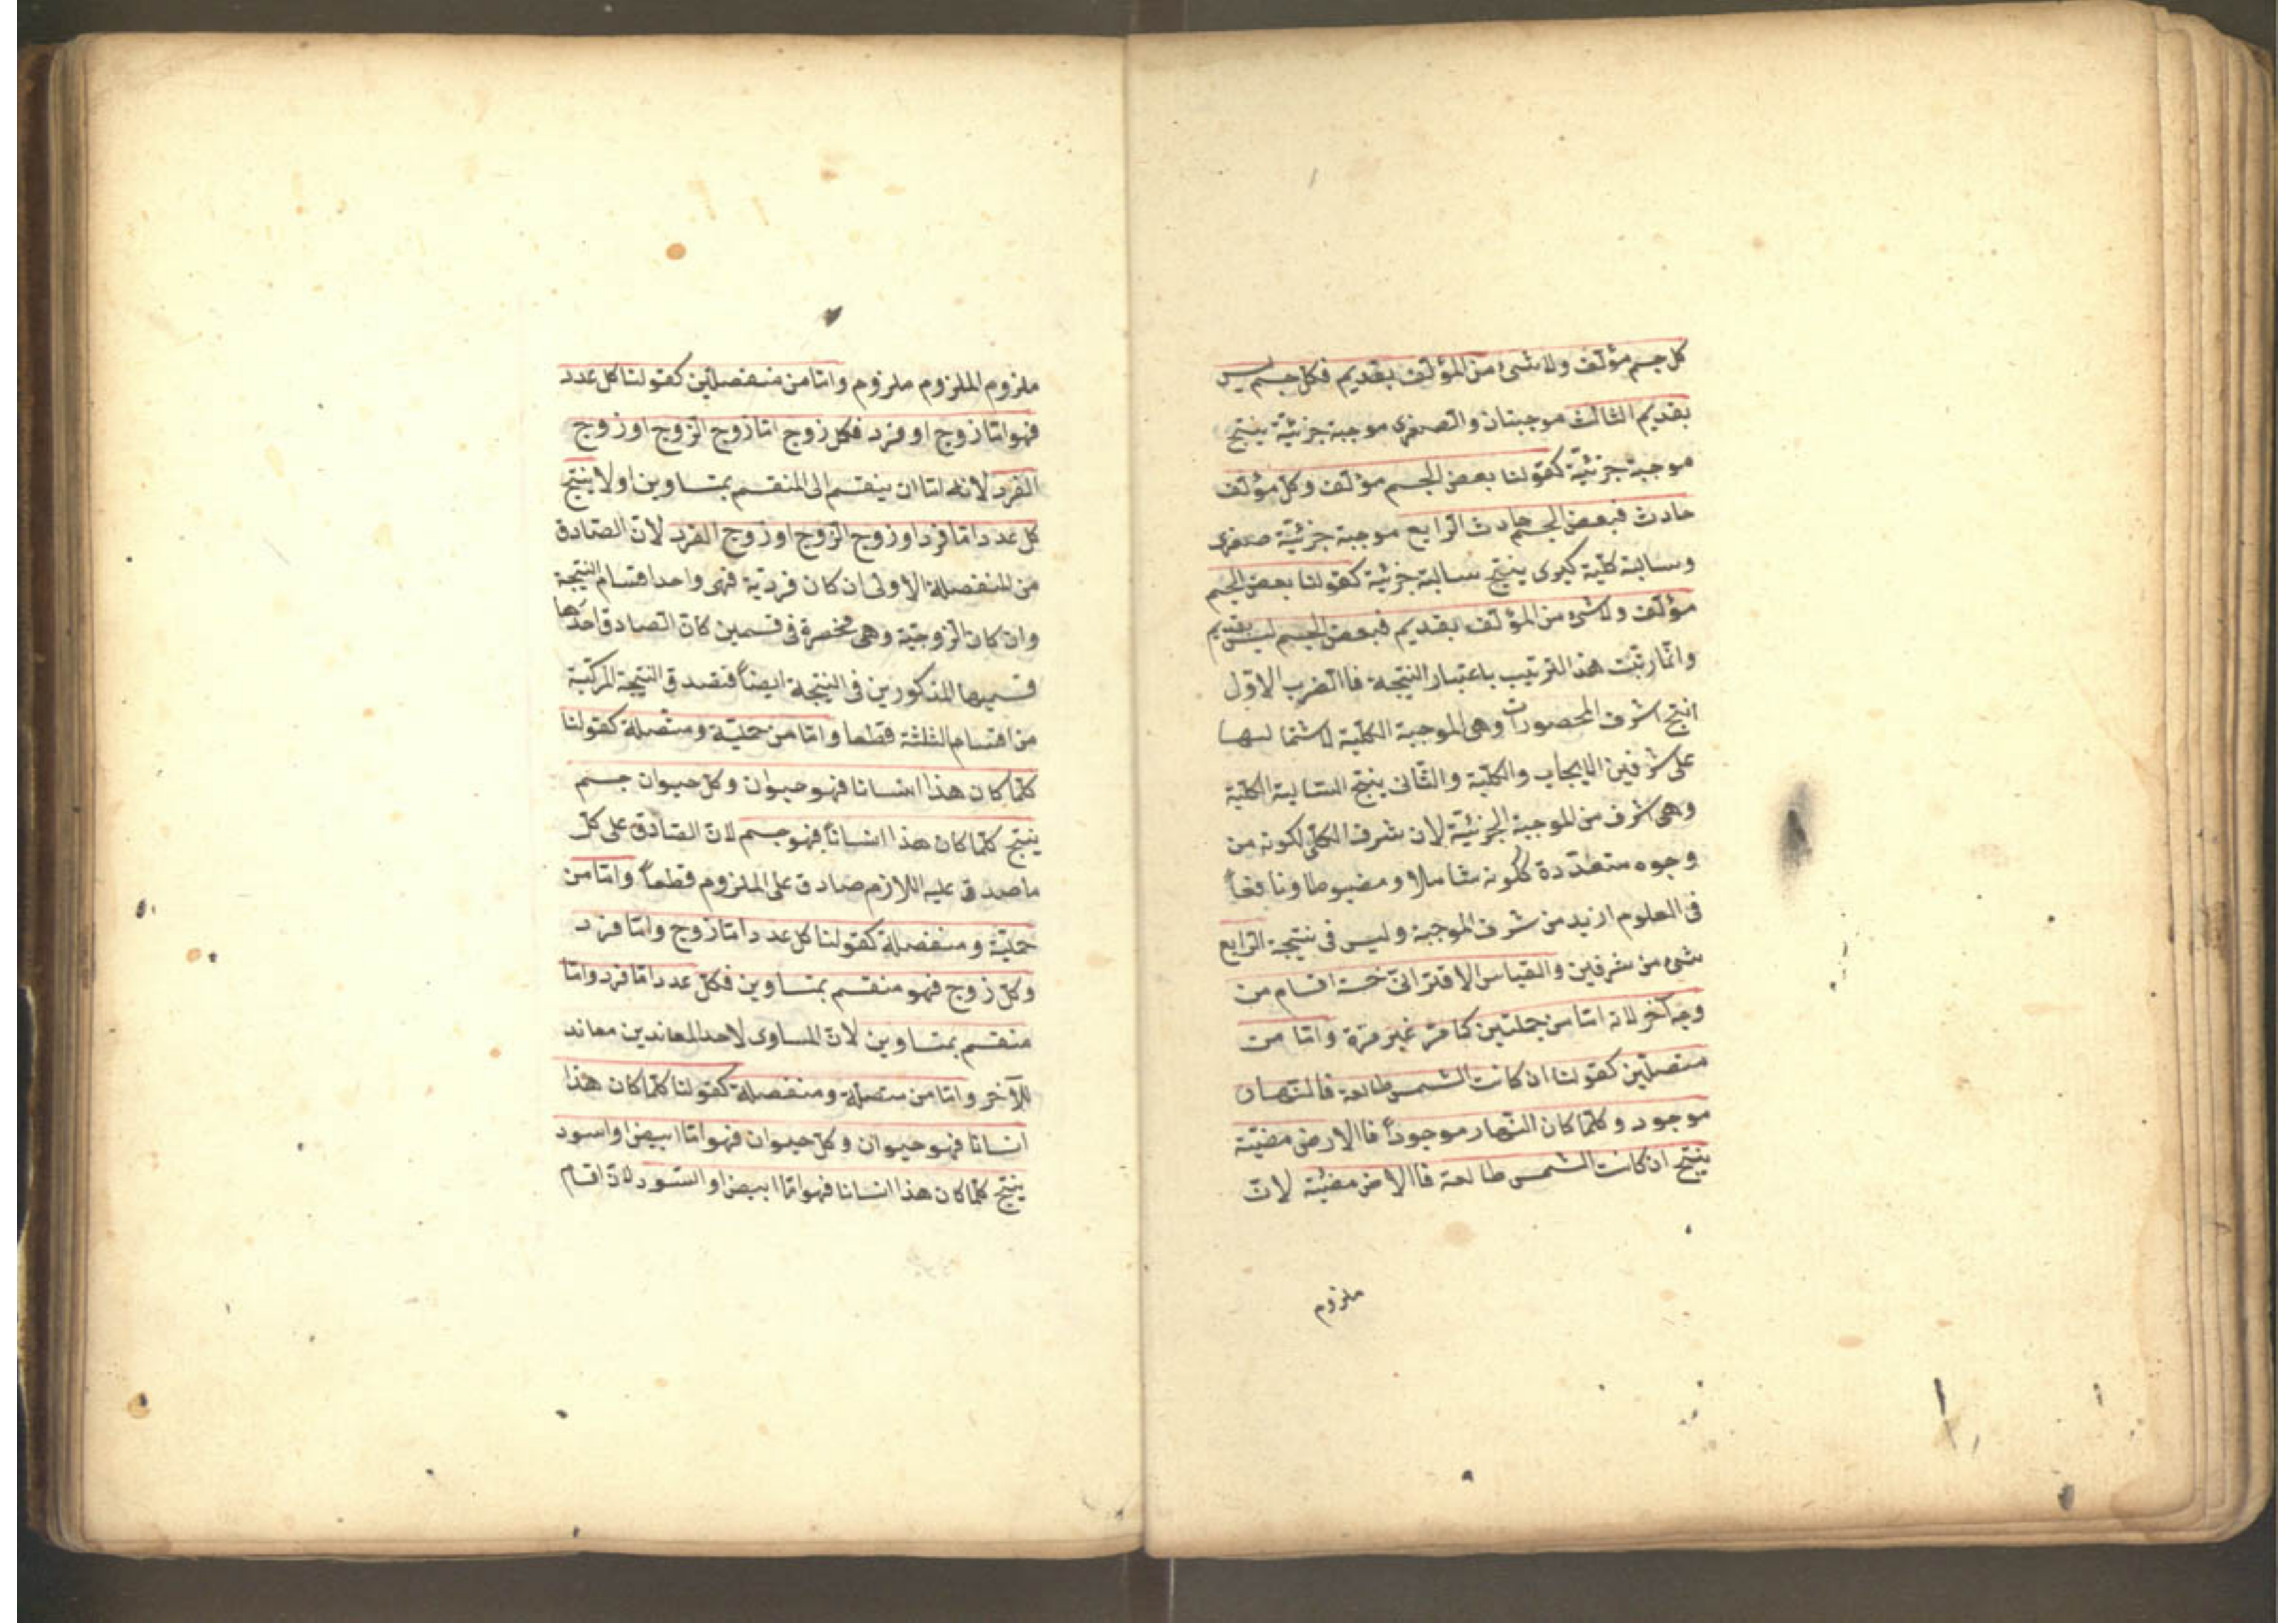 كل جسم مؤلف ولا شئ من المؤلف بقديم فكل جسم ليس
بقديم الثالث موجبتان والصغرى موجبة جزئية ينتج
موجبة جزئية كقولنا بعض الجسم مؤلف وكل مؤلف
حادث فبعض الجسم حادث الرابع موجبة جزئية صغرى
وسالبة كلية كبرى ينتج سالبة جزئية كقولنا بعض الجسم
مؤلف ولا شئ من المؤلف بقديم فبعض الجسم ليس بقديم
وانما رتبت هذا الترتيب باعتبار النتيجة فاالضرب الاول
انتج اشرف المحصورات وهى الموجبة الكلية لاشتمالها
على شرفين الايجاب والكلية والثانى ينتج السالبة الكلية
وهى اشرف من الموجبة الجزئية لان شرف الكلى لكونه من
وجوه متعددة ككونه شاملا ومضبوطا ونافعاً
فى العلوم ازيد من شرف الموجبة وليس فى نتيجة الرابع
شئ من شرفين والقياس الاقترانى خمسة اقسام من
وجه آخر لانه اما من حمليتين كما مر غير مرة واما من
متصلتين كقولنا ان كانت الشمس طالعة فالنهار
موجود وكلما كان النهار موجوداً فاالارض مضيئة
ينتج ان كانت الشمس طالعة فاالارض مضيئة لان
ملزوم
ملزوم الملزوم ملزوم واما من منفصلتين كقولنا كل عدد
فهو اما زوج او فرد فكل زوج اما زوج الزوج او زوج
الفرد لانه اما ان ينقسم الى المنقسم بمتساوين اولا ينتج
كل عدد اما فرد او زوج الزوج او زوج الفرد لان الصادق
من المنفصلة الاولى ان كان فردية فهى واحد اقسام النتيجة
وان كان الزوجية وهى منحصرة فى قسمين كان الصادق احدها
قسميها المذكورين فى النتيجة ايضاً فتصدق النتيجة المركبة
من اقسام الثلثة قطعا واما من حملية ومتصلة كقولنا
كلما كان هذا انسانا فهو حيوان وكل حيوان جسم
ينتج كلما كان هذا انساناً فهو جسم لان الصادق على كل
ما صدق عليه اللازم صادق على الملزوم قطعاً واما من
حملية ومنفصلة كقولنا كل عدد اما زوج واما فرد
وكل زوج فهو منقسم بمتساوين فكل عدد اما فرد واما
منقسم بمتساوين لان المساوى لاحد المعاندين معاند
للآخر واما من متصلة ومنفصلة كقولنا كلما كان هذا
انسانا فهو حيوان وكل حيوان فهو اما ابيض او اسود
ينتج كلما كان هذا انسانا فهو اما ابيض او اسود لان اقسام